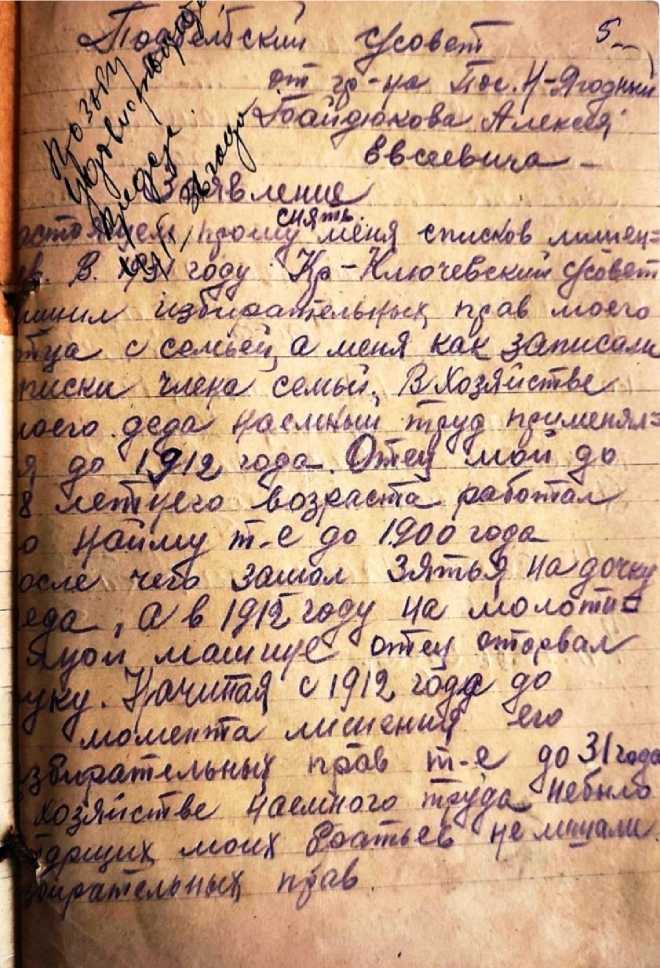 5
Подбельский с/совет
от гр-на Пос. Н-Ягодный
Байдюкова Алексея
Евсеевича
Заявление
астоящем прошу снять меня списков лишен=
В. году Кр-Ключевский с/совет
ишил избирательных прав моего
отца с семьей, а меня как записали
писки члена семьи, В хозяйстве
моего деда наемный труд применял=
я до 1912 года. Отец мой до
8 летнего возраста работал
о найму т-е до 1900 года
осле чего зашол зятья на дочку
еда, а в 1912 году на молоти=
машине отец оторвал
уку. Начиная с 1912 года до
момента лишения его
избирательных прав т-е до 31 года
хозяйстве наемного труда небыло
моих братьев не лишали
бирательных прав.